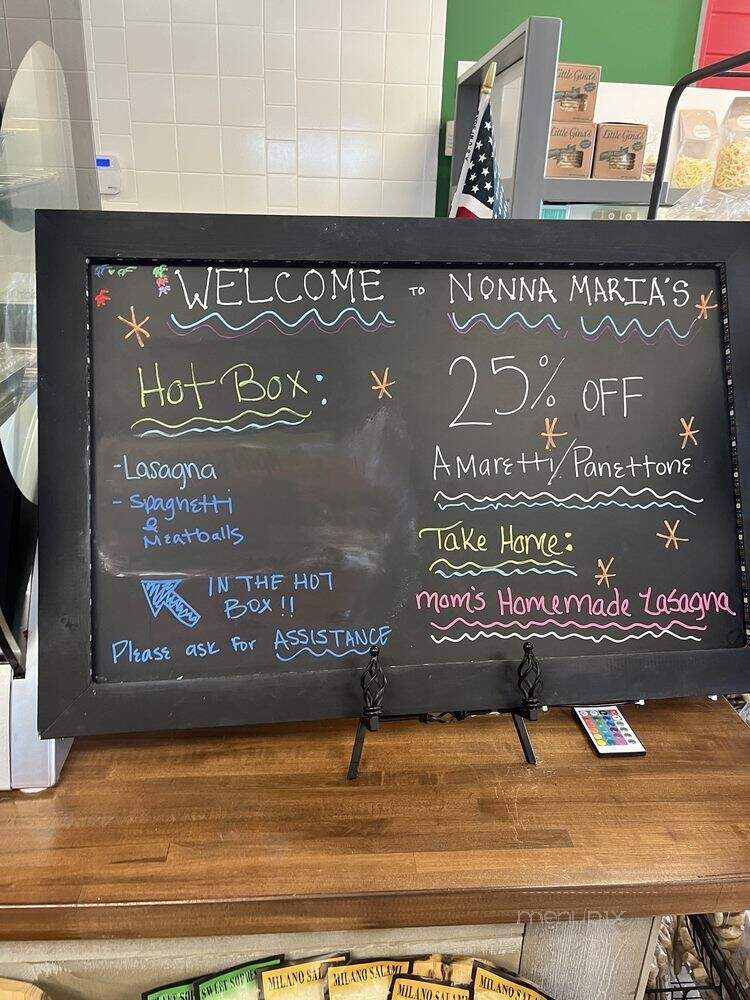 Little Gina's
Little Gina's
Little Gina's
WELCOME TO NONNA MARIA'S
Hot Box:
-Lasagna
-Spaghetti
&
Meatballs
IN THE HOT
BOX!!
Please ask for ASSISTANCE
25% OFF
Amaretti/Panettone
Take Home:
Mom's Homemade Lasagna
menupix
SWEET SOPRES
MILANO SALAMI
MILANO SALAMI
MILANO SALAMI